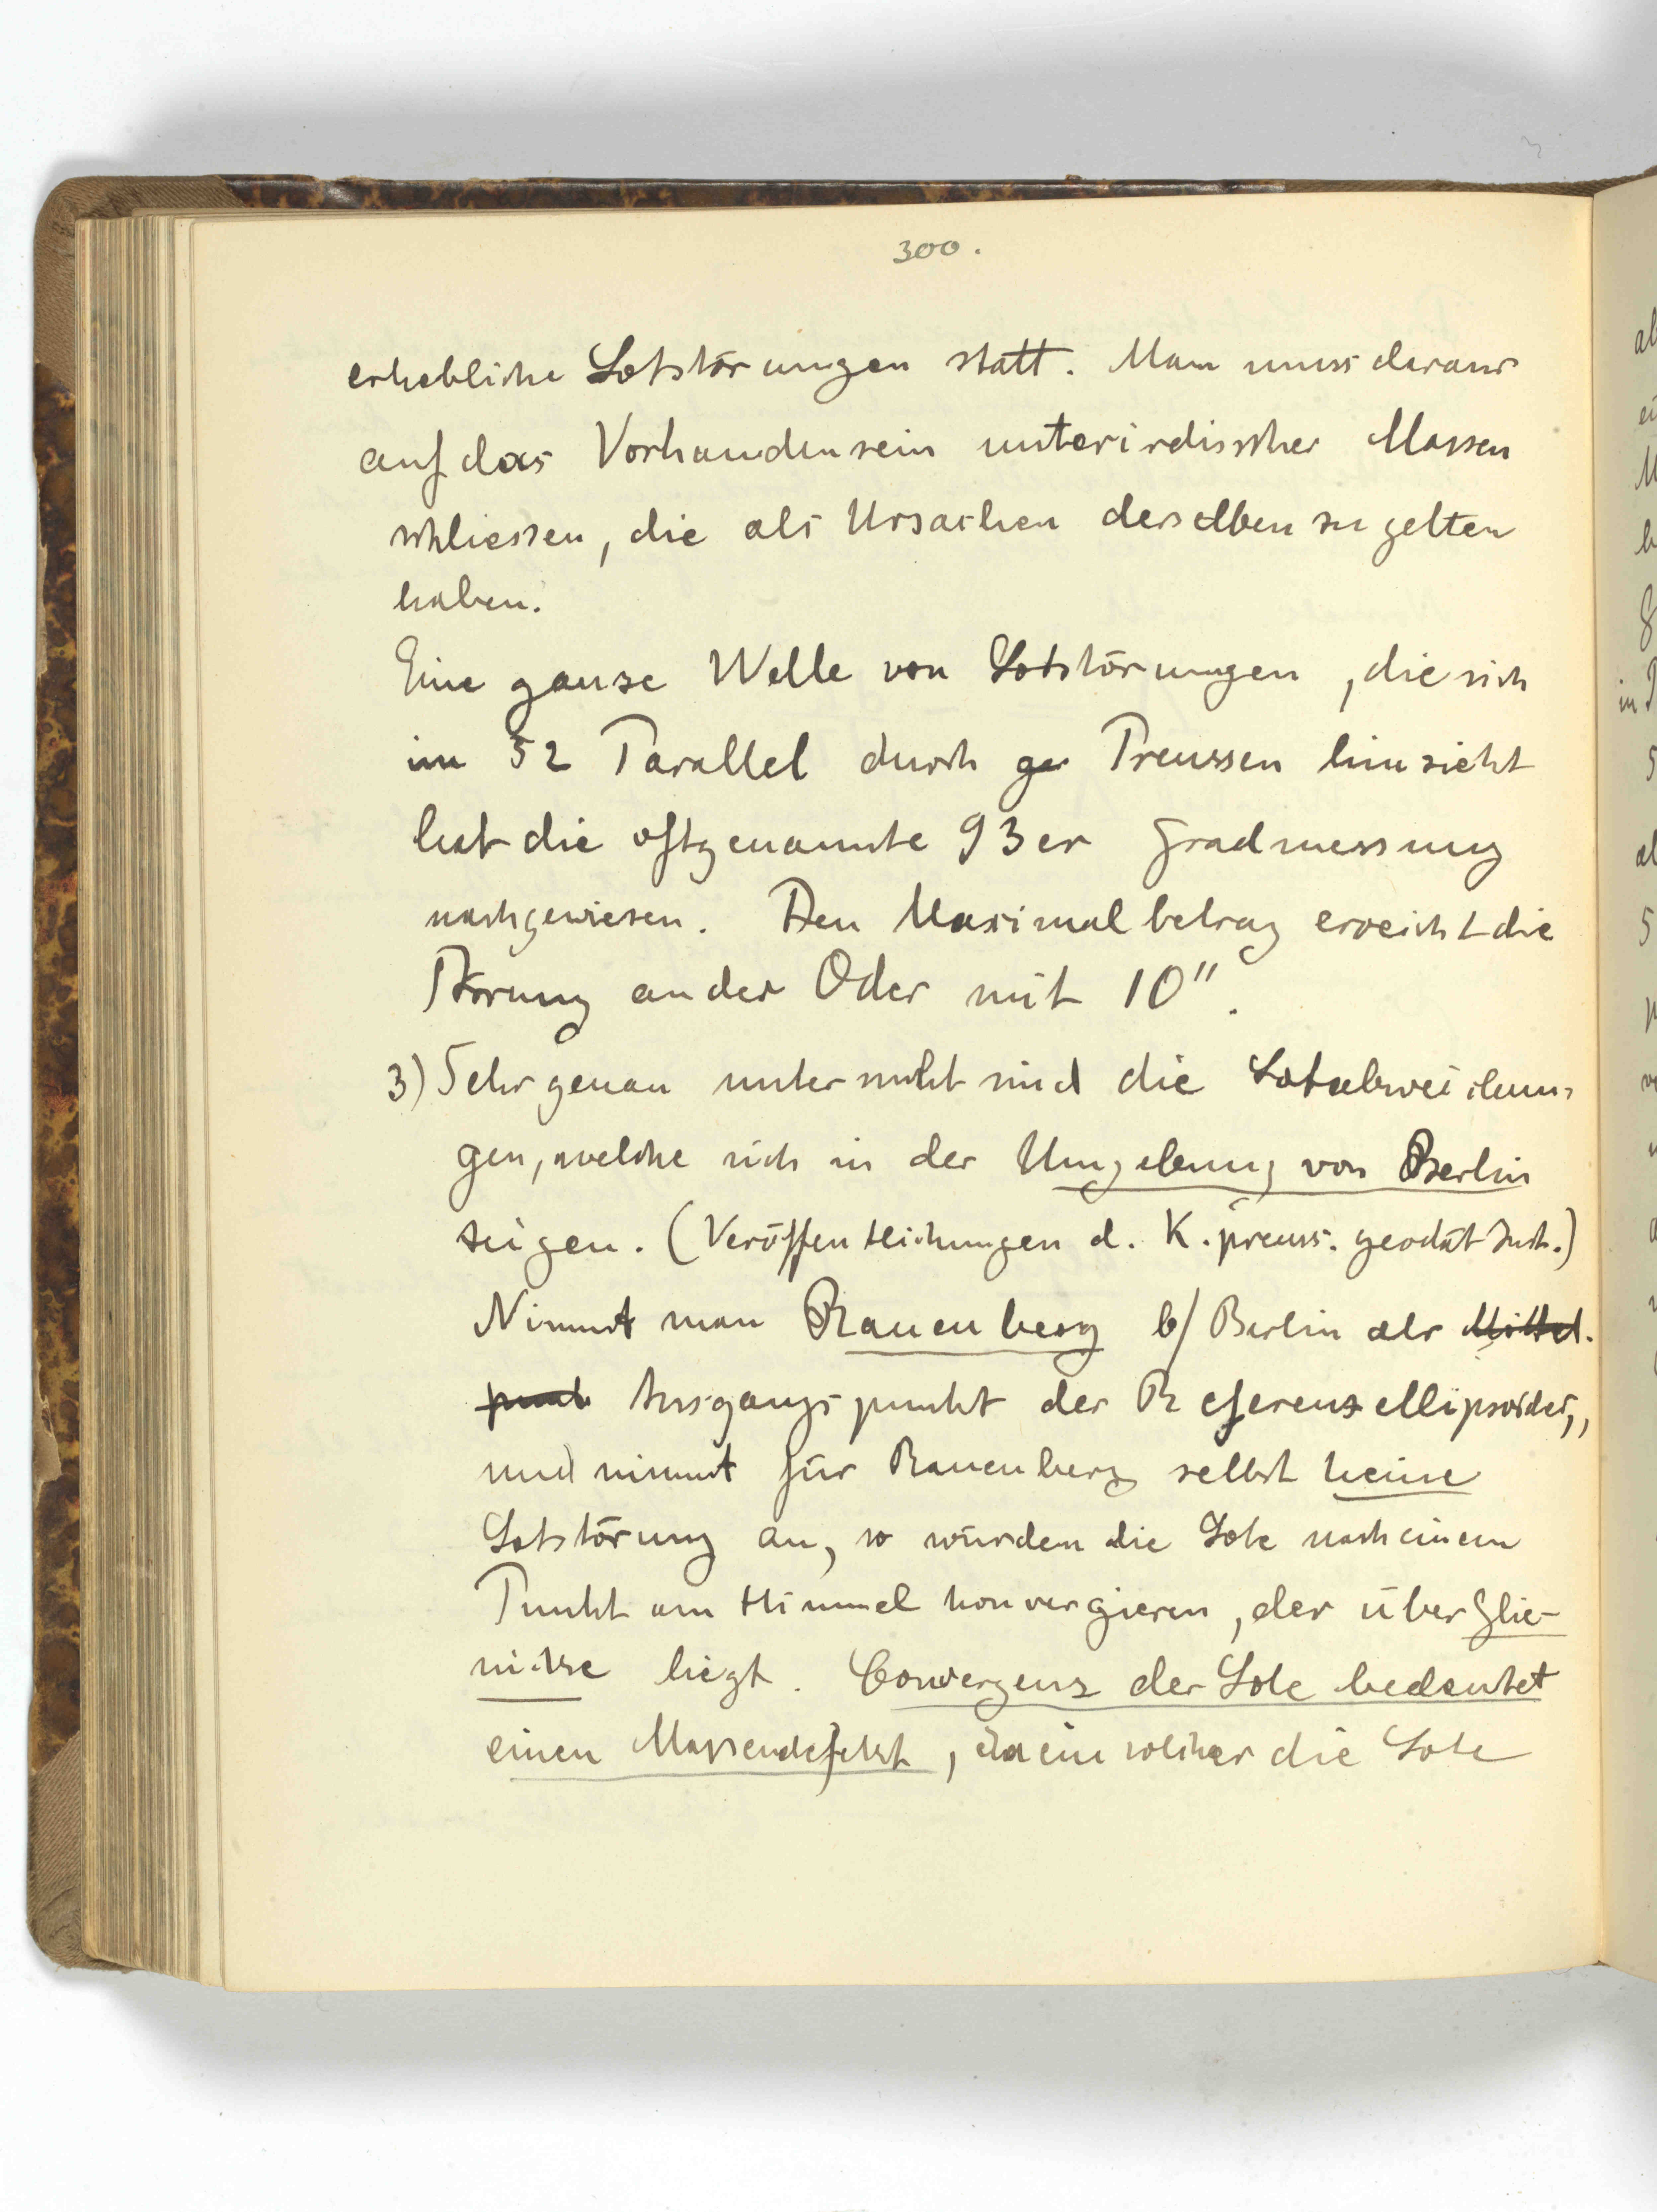 300.
erhebliche Lotstörungen statt. Man muss daraus
auf das Vorhandensein unterirdischer Massen
schliessen, die als Ursachen derselben zu gelten
haben.
Eine ganze Welle von Lotstörungen, die sich
im 52 Parallel durch ge Preussen hinzieht
hat die oftgenannte 93er Gradmessung
nachgewiesen. Den Maximalbetrag erreicht die
Störung an der Oder mit 10".
3) Sehr genau untersucht sind die Lotabweichun-
gen, welche sich in der Umgebung von Berlin
zeigen. (Veröffentlichungen d. K. preuss. geodät Inst.)
Nimmt man Rauenberg b/Berlin als Mittel-
punkt Ausgangspunkt des Referenzellipsoides,
und nimmt für Rauenberg selbst keine
Lotstörung an, so würden die Lote nach einem
Punkt am Himmel konvergieren, der über Glie-
nicke liegt. Convergenz der Lote bedeutet
einen Massendefekt, da ein solcher die Lote